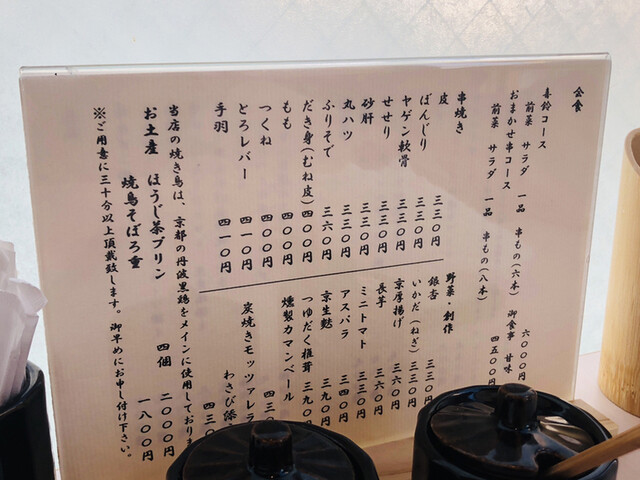 会食
喜鈴コース
前菜 サラダ 一品 串もの(六本) 御食事 甘味 六〇〇〇円
おまかせ串コース
前菜 サラダ 一品 串もの(八本) 四五〇〇円
串焼き
皮 三三〇円
ぼんじり 三三〇円
ヤゲン軟骨 三三〇円
せせり 三三〇円
砂肝 三三〇円
丸ハツ 三三〇円
ふりそで 三六〇円
だき身(むね皮) 四〇〇円
もも 四〇〇円
つくね 四〇〇円
とろレバー 四一〇円
手羽 四一〇円
野菜・創作
銀杏 三三〇円
いかだ(ねぎ) 三三〇円
京厚揚げ 三六〇円
長芋 三六〇円
ミニトマト 三三〇円
アスパラ 三四〇円
京生麩 三九〇円
つゆだく椎茸 三九〇
燻製カマンベール 四三〇
炭焼きモッツァレラ
わさび 四三〇
当店の焼き鳥は、京都の丹波黒鶏をメインに使用しております
お土産 ほうじ茶プリン 四個 二〇〇〇円
焼鳥そぼろ重 一八〇〇円
※ご用意に三十分以上頂戴致します。御早めにお申し付け下さい。